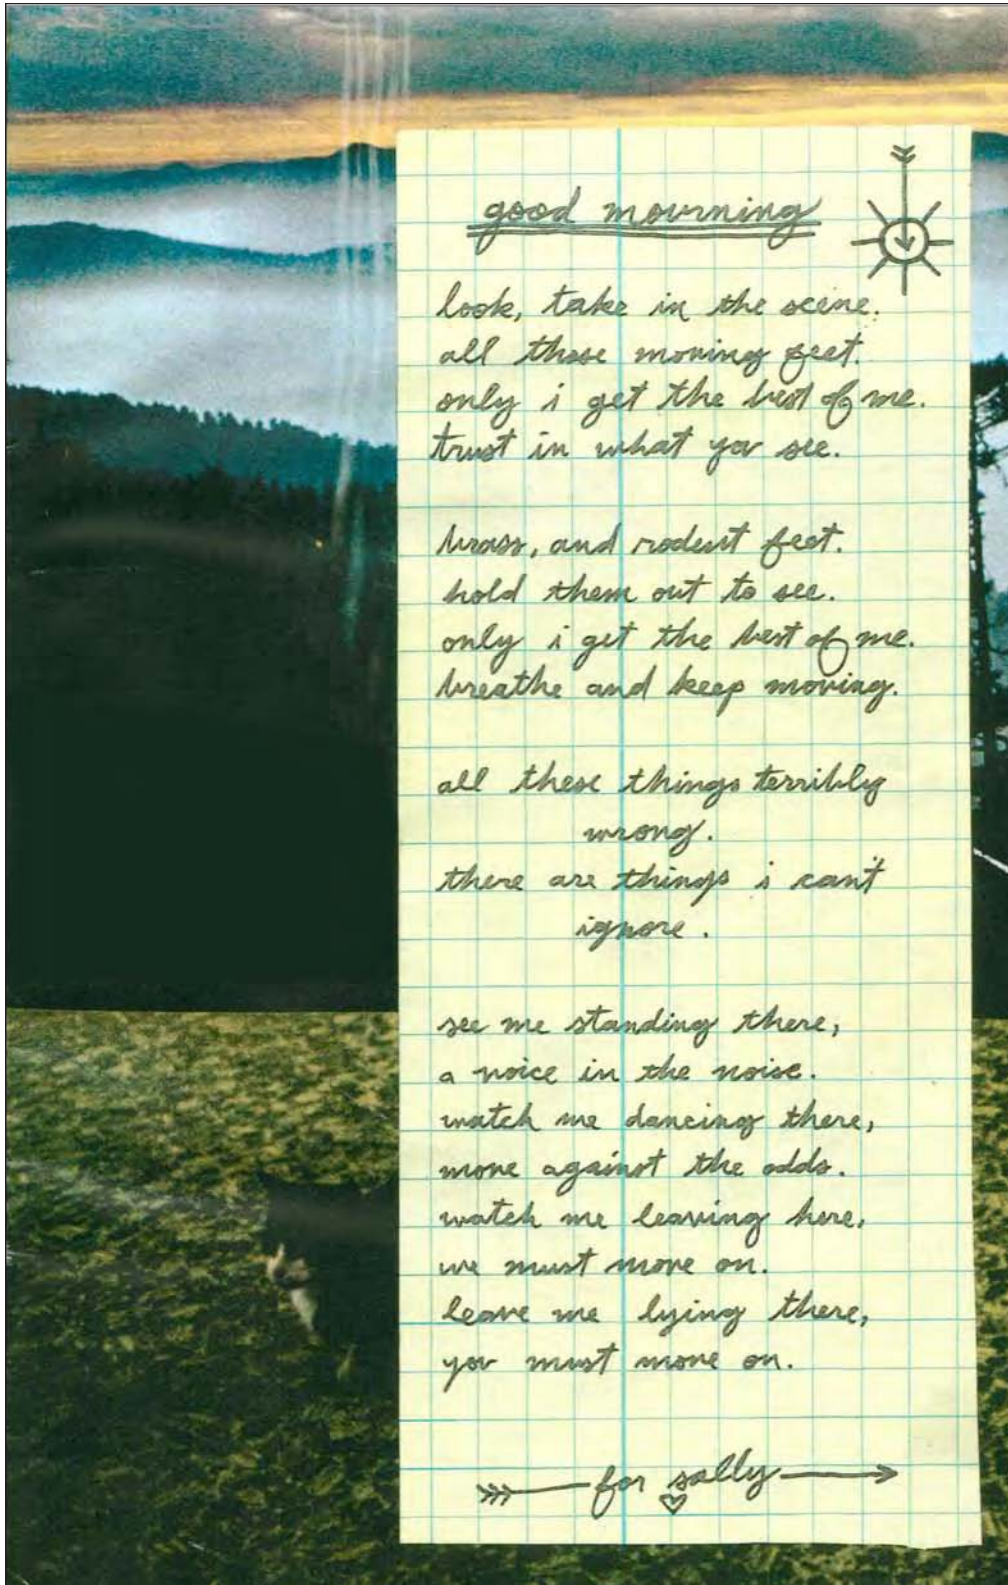 good mourning
look, take in the scene.
all those moving feet.
only i get the best of me.
trust in what you see.
brass, and rodent feet.
hold them out to see.
only i get the best of me.
breathe and keep moving.
all these things terribly
wrong.
there are things i can't
ignore.
see me standing there,
a voice in the noise.
watch me dancing there,
move against the odds.
watch me leaving here,
we must move on.
leave me lying there,
you must move on.
for sally